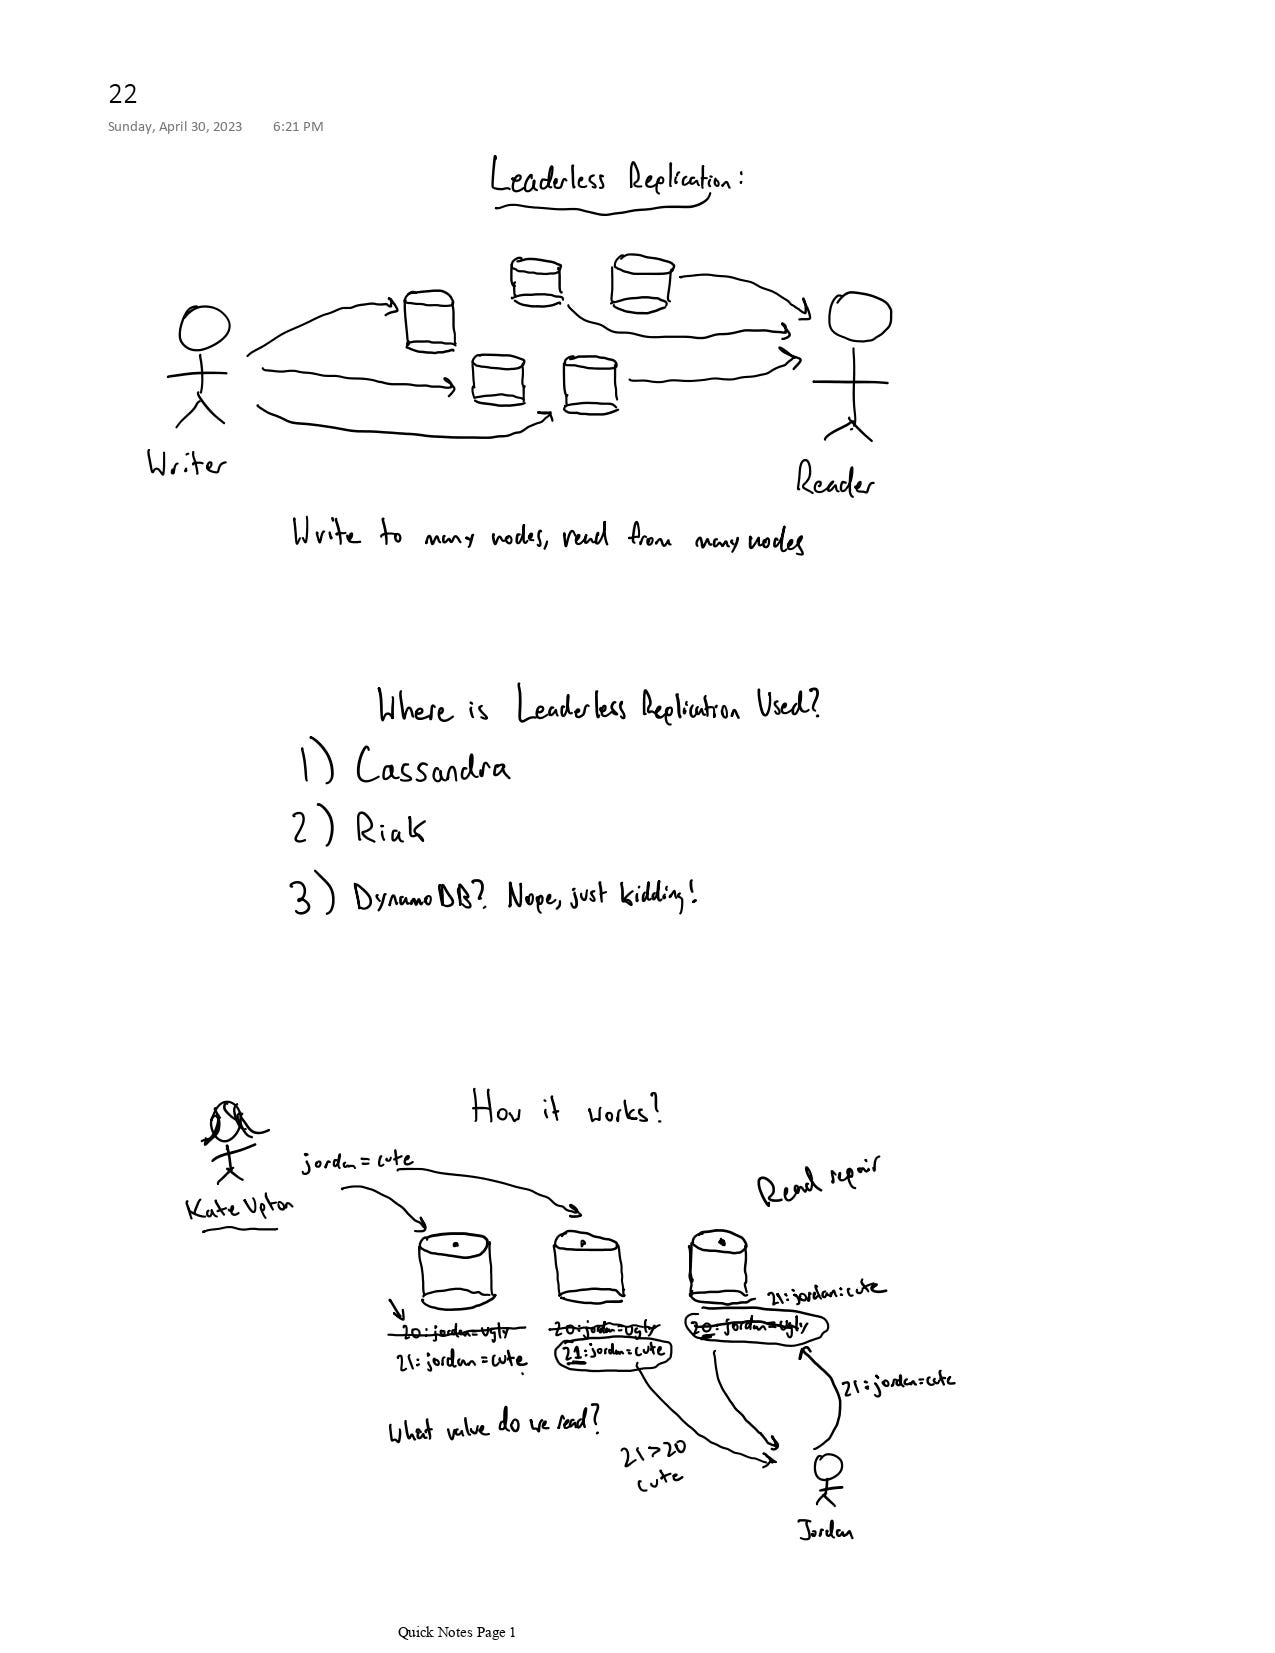 22
Sunday, April 30, 2023 6:21 PM
Leaderless Replication:
Writer
Reader
Write to many nodes, read from many nodes
Where is Leaderless Replication Used?
1) Cassandra
2) Riak
3) DynamoDB? Nope, just kidding!
How it works?
jordan = cute
Read repair
Kate Upton
21: jordan: cute
20: jordan = ugly
20: jordan = ugly
20: jordan = ugly
21: jordan = cute
21: jordan = cute
21: jordan = cute
What value do we read?
21 > 20
cute
Jordan
Quick Notes Page 1